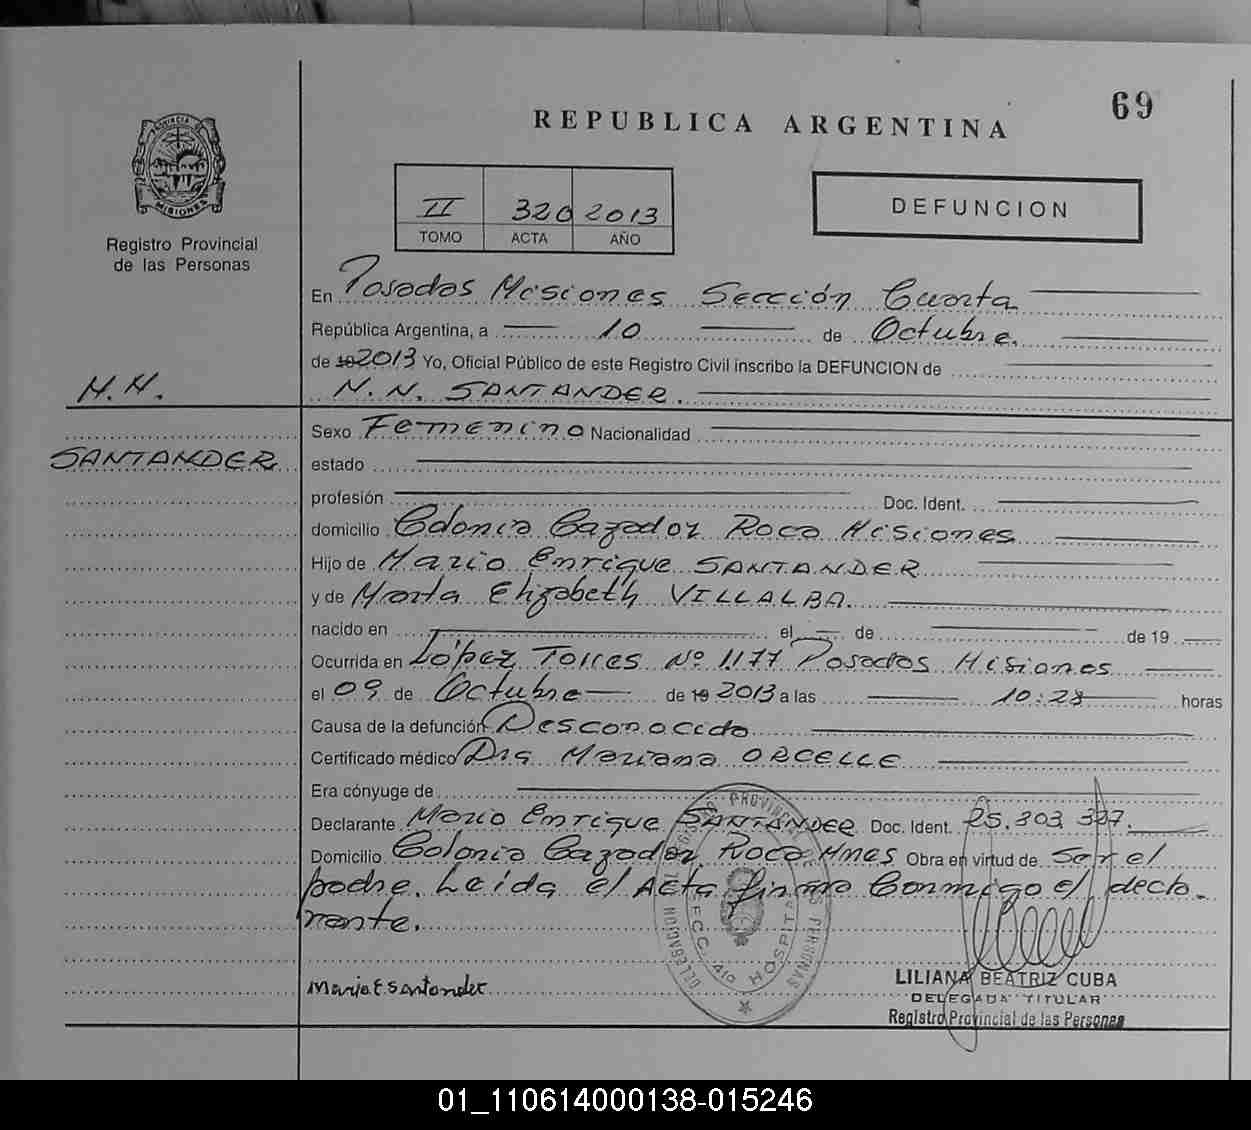 69
REPUBLICA ARGENTINA
PROVINCIA DE MISIONES
Registro Provincial
de las Personas
II 320 2013
TOMO ACTA AÑO
DEFUNCION
En Posadas Misiones Sección Cuarta
República Argentina, a 10 de Octubre.
de 19 2013 Yo, Oficial Público de este Registro Civil inscribo la DEFUNCION de
N.N. SANTANDER.
N.N.
SANTANDER
Sexo Femenino Nacionalidad
estado
profesión Doc. Ident.
domicilio Colonia Cazador Roca Misiones
Hijo de Mario Enrique SANTANDER
y de Marta Elizabeth VILLALBA.
nacido en el de de 19
Ocurrida en López Torres Nº 1177 Posadas Misiones
el 09 de Octubre de 19 2013 a las 10:28 horas
Causa de la defunción Desconocido
Certificado médico Dra Mariana ORCELLE
Era cónyuge de
Declarante Mario Enrique SANTANDER Doc. Ident. 25.303.327.
Domicilio Colonia Cazador Roca Mnes Obra en virtud de Ser el
padre. Leida el Acta firma Conmigo el decla-
rante.
Mario E Santander
REGISTRO PROVINCIAL DE LAS PERSONAS
DELEGACION
SECC. 4ta HOSPITAL
LILIANA BEATRIZ CUBA
DELEGADA TITULAR
Registro Provincial de las Personas
01_110614000138-015246